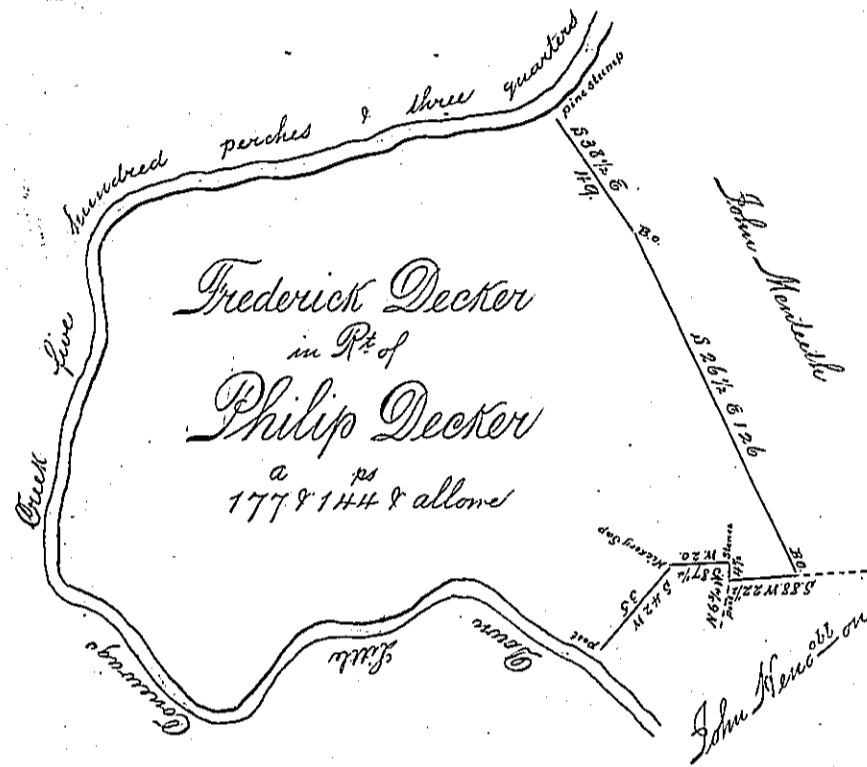 Down Little Conewago Creek five hundred perches & three quarters
pine stump
S 38½ E
49.
B.O.
John Menteith
S 26½ E 126
Frederick Decker
in Rt. of
Philip Decker
a ps
177 & 144 & allowe
B.O.
S.88.W 22½
post
Stones
4½
S 87½ W.20.
Hickory Sap
S 42 W
35
post
John